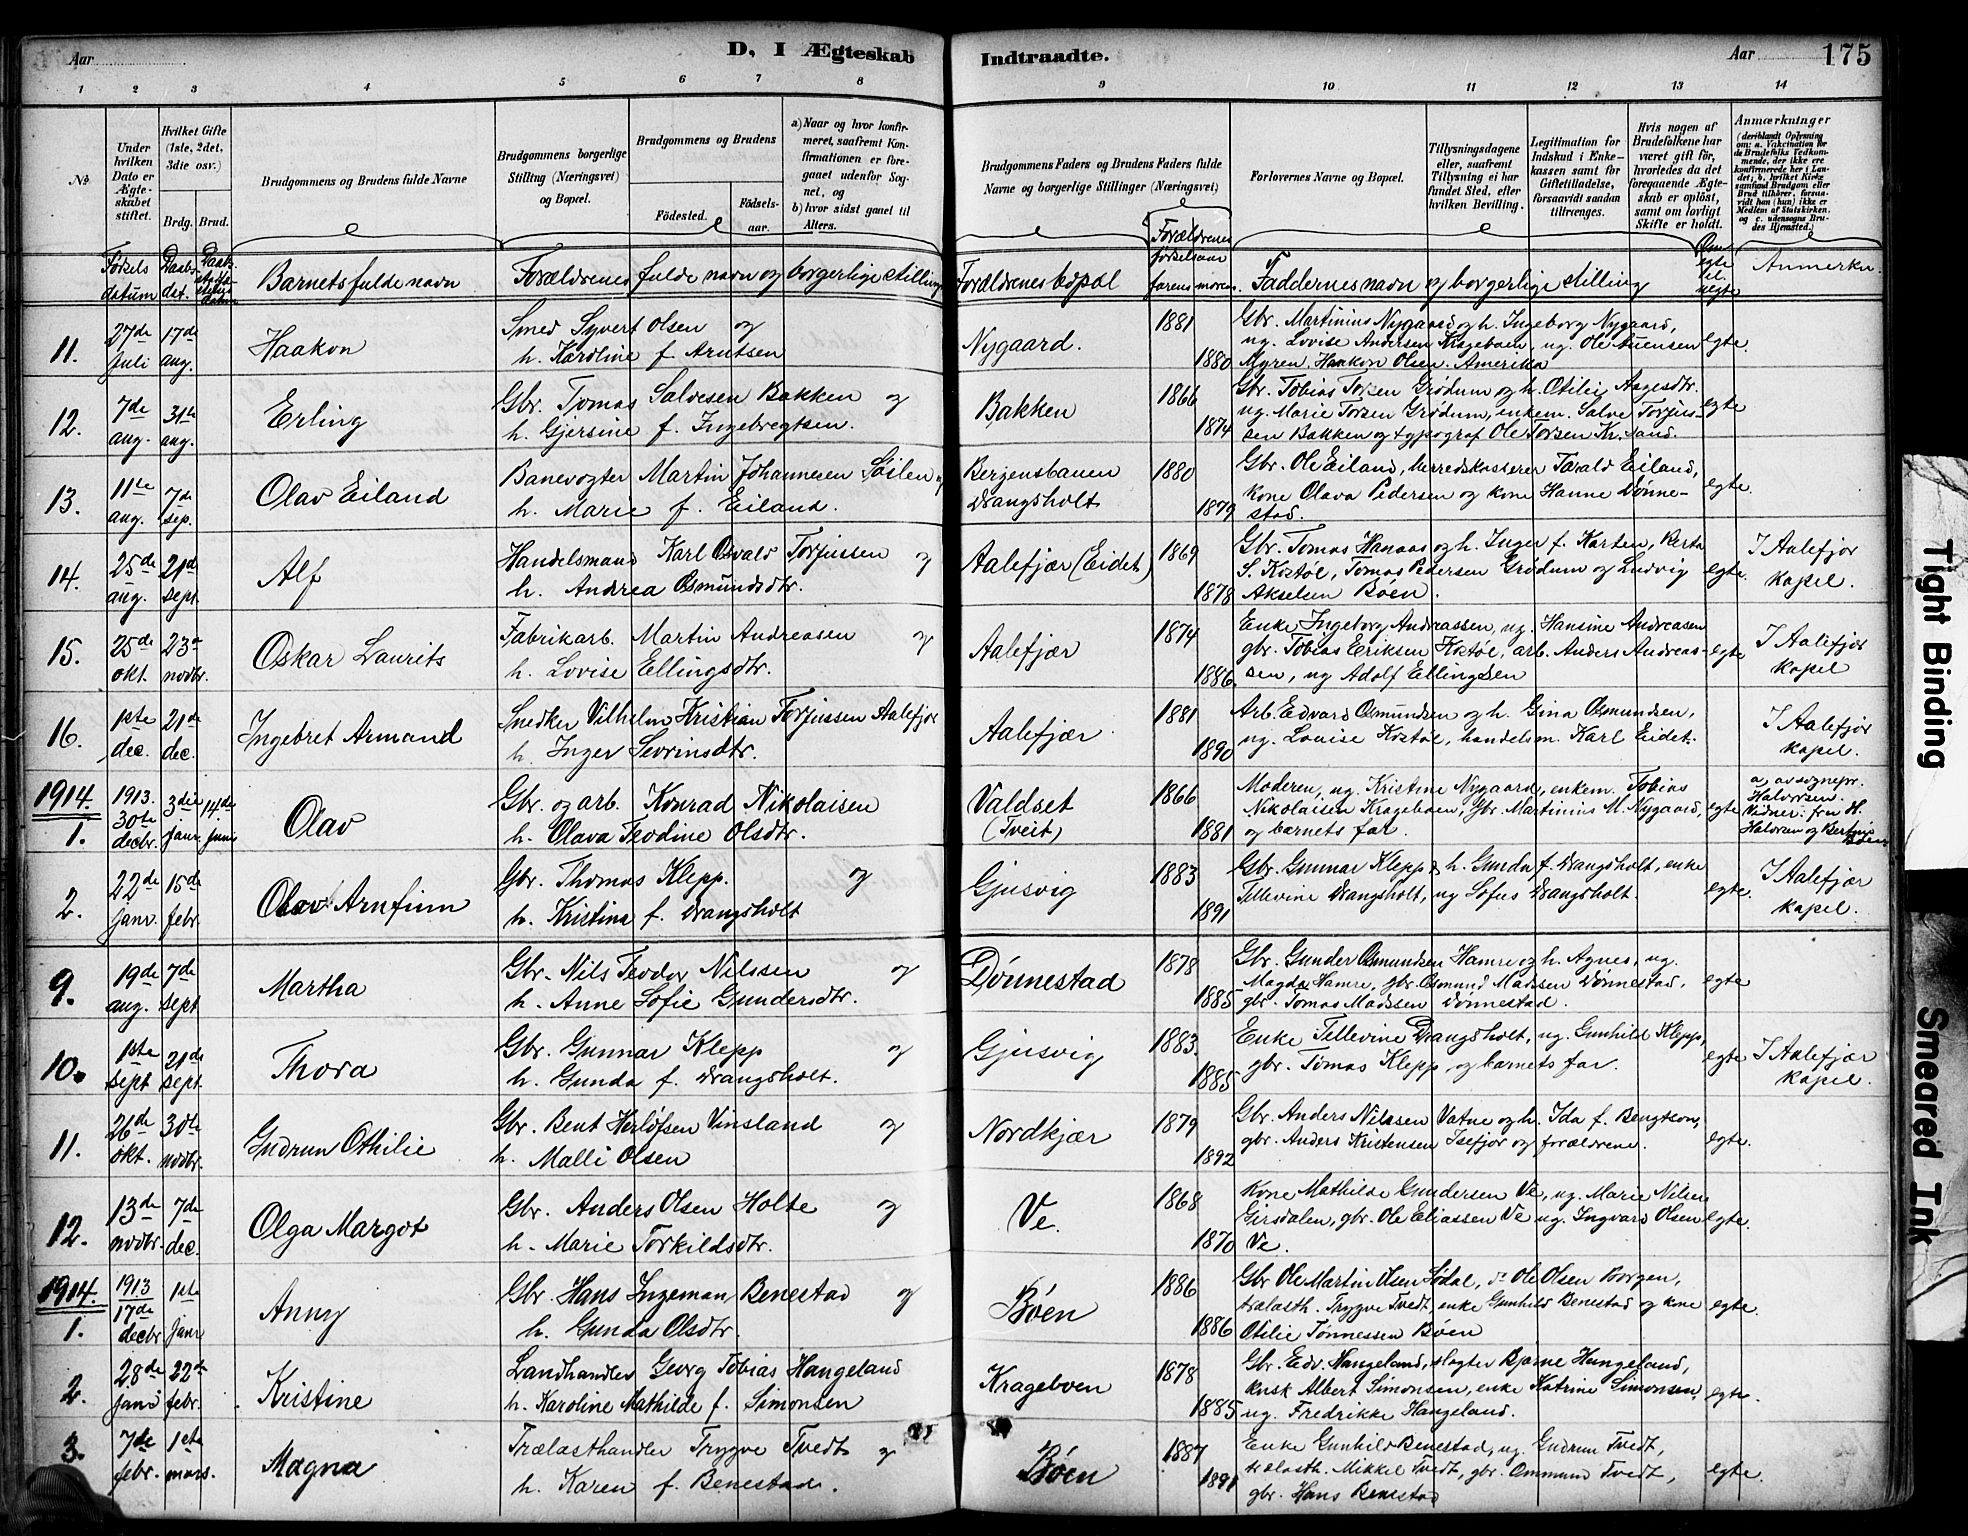 Aar D, I Ægteskab Indtraadte. Aar 175
1 2 3 4 5 6 7 8 9 10 11 12 13 14
№
Under hvilken Dato er Ægteskabet stiftet.
Hvilket Gifte (1ste, 2det, 3die osv.)
Brdg. Brud.
Brudgommens og Brudens fulde Navne
Brudgommens borgerlige Stilling (Næringsvei) og Bopæl.
Brudgommens og Brudens
Fødested. Fødselsaar.
a) Naar og hvor konfirmeret, saafremt Konfirmationen er foregaaet udenfor Sognet, og
b) hvor sidst gaaet til Alters.
Brudgommens Faders og Brudens Faders fulde Navne og borgerlige Stillinger (Næringsvei)
Forlovernes Navne og Bopæl.
Tillysningsdagene eller, saafremt Tillysning ei har fundet Sted, efter hvilken Bevilling.
Legitimation for Indskud i Enkekassen samt for Giftetilladelse, forsaavidt saadan tiltrænges.
Hvis nogen af Brudefolkene har været gift før, hvorledes da det foregaaende Ægteskab er opløst, samt om lovligt Skifte er holdt.
Anmærkninger (deriblandt Oplysning om: a. Vakcination for de Brudefolks Vedkommende, der ikke ere konfirmerede her i Landet; b. hvilket Kirkesamfund Brudgom eller Brud tilhører, forsaavidt han (hun) ikke er Medlem af Statskirken, og c. udensogns Brudes Hjemsted.)
Fødsels datum Daabsdet. Barnets fulde navn Forældrenes fulde navn og borgerlige stilling Forældrenes bopæl Forældrenes fødselsaar farens morens Faddernes navn og borgerlige stilling Om egte el. uegte Anmerkn.
11. 27de juli 17de aug. Haakon Smed Syvert Olsen og Nygaard. 1881 Gbr. Martinius Nygaard og h. Ingeborg Nygaard,
h. Karoline f. Arntsen 1880 ug. Lovise Andersen Krageboen, ug. Ole Evensen egte.
Myren. Haakon Olsen. Amerika
12. 7de aug. 31te aug. Erling Gbr. Tomas Salvesen Bakken og Bakken 1866 Gbr. Tobias Torsen Grødum og h. Otilie Aagesdtr.
h. Gjersine f. Ingebregtsen. 1874 ug. Marie Torsen Grødum, enkem. Salve Torjus- egte
sen Bakken og typograf Ole Torsen Kr.sand.
13. 11te aug. 7de sep. Olav Eiland Banevogter Martin Johannesen Søslen og Bergensbanen 1880 Gbr. Ole Eiland, herredskasserer Tarald Eiland,
h. Marie f. Eiland. Drangsholt 1879 kone Olava Pedersen og kone Hanne Dønne- egte.
stad.
14. 25de aug. 21de sept. Alf Handelsmand Karl Osvald Torjussen og Aalefjær (Eidet) 1869 Gbr. Tomas Hanaas og h. Inger f. Karten, Berta I Aalefjær
h. Andrea Osmundsdtr. 1878 S. Kostøl, Tomas Pedersen Grødum og Ludvig egte. kapel.
Akselsen Bøen.
15. 25de okt. 23de novbr. Oskar Laurits Fabrikarb. Martin Andreasen og Aalefjær 1874 Enke Ingeborg Andreassen, ug. Hansine Andreasen I Aalefjær
h. Lovise Ellingsdtr. 1886. gbr. Tobias Eriksen Kostøl, arb. Anders Andreas- egte kapel
sen, ug Adolf Ellingsen
16. 1ste dec. 21de dec. Ingebret Armand Snedker Vilhelm Kristian Torjussen Aalefjær Aalefjær 1881 Arb. Edvard Osmundsen og h. Gina Osmundsen, I Aalefjær
h. Inger Sevrinsdtr. 1890 ug. Louise Kostøl, handelsm. Karl Eidet. kapel.
1914.
1. 1913. 30te decbr. 3die janr. 14de juni Olav Gbr. og arb. Konrad Nikolaisen Valdset 1866 Moderen, ug. Kristine Nygaard, enkem. Tobias a, av sognepr. Halvorsen.
h. Olava Teodine Olsdtr. (Tveit) 1881 Nikolaisen Krageboen, gbr. Martinius M. Nygaard, egte Vidner: fru H. Halvorsen og Bøen
og barnets far.
2. 22de janv. 15de febr. Olav Arnfinn Gbr. Thomas Klepp. og Gjusvig 1883 Gbr. Gunnar Klepp & h. Gunda f. Drangsholt, enke I Aalefjær
h. Kristina f. Drangsholt 1891 Tellevine Drangsholt, ug Sofus Drangsholt. egte. kapel.
9. 19de aug. 7de sept. Martha Gbr. Nils Teodor Nilssen og Dønnestad 1878 Gbr. Gunder Osmundsen Hamre og h. Agnes, ug.
h. Anne Sofie Gundersdtr. 1885 Magda Hamre, gbr. Osmund Madssen Dønnestad, egte
gbr. Tomas Madssen Dønnestad.
10. 1ste sept 21de sept. Thora Gbr. Gunnar Klepp og Gjusvig 1883. Enke Tellevine Drangsholt, ug. Gunhild Klepp, I Aalefjær
h. Gunda f. Drangsholt. 1885 gbr. Tomas Klepp og barnets far. egte kapel.
11. 26de okt. 30te novbr. Gudrun Othilie Gbr. Bent Herlofsen Vinsland og Nordkjær 1879 Gbr. Anders Nilssen Vatne og h. Ida f. Bengtson,
h. Malli Olsen 1892 gbr. Anders Kristensen Isefjær og forældrene. egte.
12. 13de novbr. 7de dec. Olga Margot Gbr. Anders Olsen Holte og Ve. 1868 Kone Mathilde Gundersen Ve, ug. Marie Nilsen
h. Marie Torkildsdtr. 1870 Girsdalen, gbr. Ole Eliassen Ve ug. Ingvard Olsen egte.
Ve.
1914.
1. 1913 17de decbr 1ste janr Anny Gbr. Hans Ingeman Benestad og Bøen 1886 Gbr Ole Martin Olsen Sødal, do Ole Olsen Borgen,
h. Gunda Olsdtr. 1886 trælasth. Trygve Tvedt, enke Gunhild Benestad og kone egte.
Otilie Tønnessen Bøen
2. 28de janr 22de febr. Kristine Landhandler Georg Tobias Hangeland Krageboen 1878 Gbr. Edv. Hangeland, slagter Bjarne Hangeland,
h. Karoline Mathilde f. Simonsen 1885 kusk Albert Simonsen, enke Katrine Simonsen, egte.
ug. Fredrikke Hangeland.
3. 7de febr. 1ste mars. Magna Trælasthandler Trygve Tvedt og Bøen 1887 Enke Gunhild Benestad, ug. Gudrun Tvedt,
h. Karen f. Benestad. 1891 trælasth. Mikkel Tvedt, gbr. Ommund Tvedt, egte.
gbr. Hans Benestad
Tight Binding
Smeared Ink